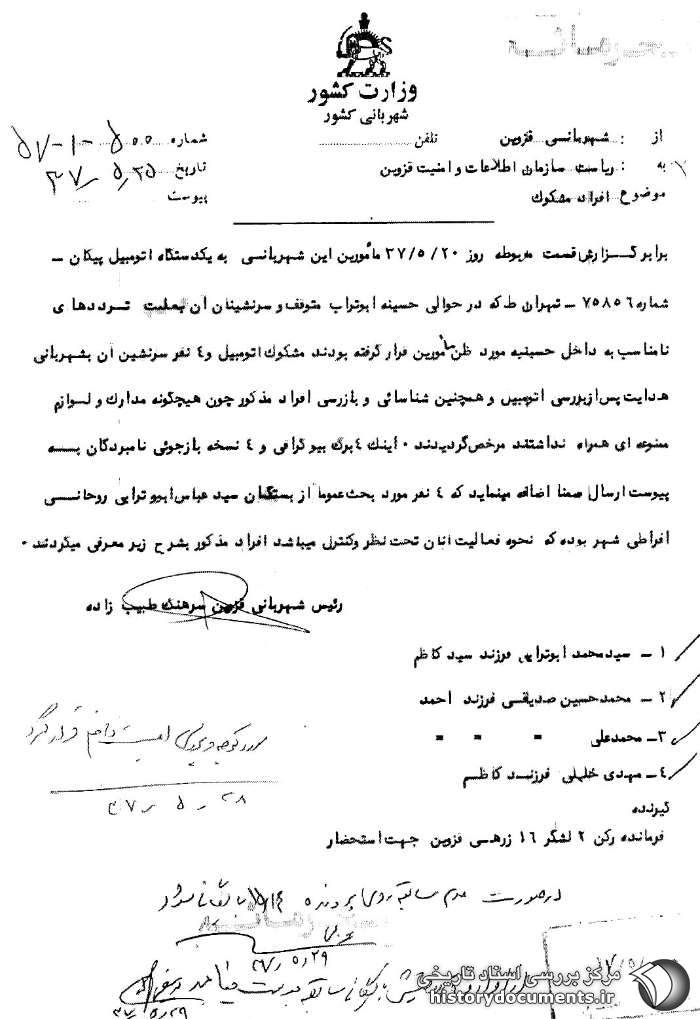 وزارت کشور
شهربانی کشور
از : شهربانی قزوین تلفن شماره ۵۰۰-۱-۵۷
به : ریاست سازمان اطلاعات و امنیت قزوین تاریخ ۳۷/۵/۲۵
موضوع افراد مشکوک پیوست
برابر گزارش قسمت مربوطه روز ۳۷/۵/۲۰ مأمورین این شهربانی به یکدستگاه اتومبیل پیکان -
شماره ۷۵۸۵۶ - تهران ط که در حوالی حسینه ابوتراب متوقف و سرنشینان آن بعلت ترددهای
نامناسب به داخل حسینیه مورد ظن مأمورین قرار گرفته بودند مشکوک اتومبیل و ۴ نفر سرنشین آن بشهربانی
هدایت پس از بررسی اتومبیل و همچنین شناسائی و بازرسی افراد مذکور چون هیچگونه مدارک و لوازم
ممنوعه ای همراه نداشتند مرخص گردیدند ۰ اینک ۴ برگ بیوگرافی و ۴ نسخه بازجوئی نامبردگان بسه
پیوست ارسال ضمنا اضافه مینماید که ۴ نفر مورد بحث عموما از بستگان سید عباس ابوترابی روحانسی
افراطی شهر بوده که نحوه فعالیت آنان تحت نظر و کنترل میباشد افراد مذکور بشرح زیر معرفی میگردند ۰
رئیس شهربانی قزوین سرهنگ طبیب زاده
۱ - سید محمد ابوترابی فرزند سید کاظم
۲ - محمد حسین صدیقی فرزند احمد
۳ - محمد علی " " "
۴ - مهدی خلیلی فرزند کاظم
۳۷/۵/۲۸
گیرنده
فرمانده رکن ۲ لشگر ۱۶ زرهی قزوین جهت استحضار
در صورت عدم سابقه روی پرونده
۳۷/۵/۲۹
۳۷/۵/۲۹
مرکز بررسی اسناد تاریخی
historydocuments.ir